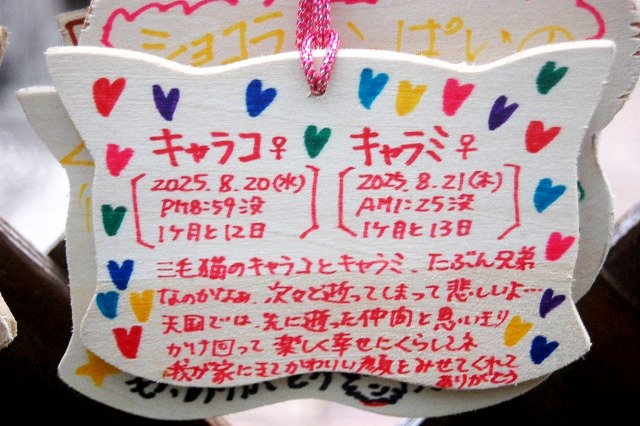 ショコラ ぱいの
キャラコ♀ キャラミ♀
2025.8.20(水) 2025.8.21(木)
PM8:59没 AM1:25没
1ケ月と12日 1ケ月と13日
三毛猫のキャラコとキャラミ、たぶん兄弟
なのかなぁ、次々と逝ってしまって悲しいよ…
天国では、先に逝った仲間と思いっきり
かけ回って楽しく幸せにくらしてネ
我が家にきてかわいい顔をみせてくれて
ありがとう